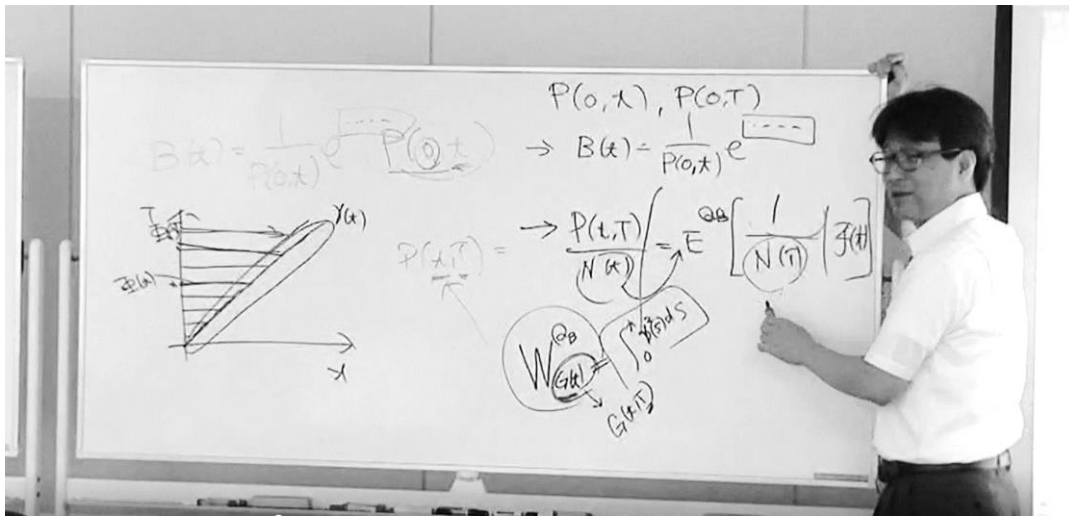 P(0,t), P(0,T)
B(t) = 1/P(0,t) e P(0,t)
→ B(t) = 1/P(0,t) e
P(t,T) =
→ P(t,T)/N(t) = E^{Q_B}[1/N(T) | F(t)]
Y(t)
T
Φ(t)
x
W^{Q_B}_{G(t)} = ∫_0 (s)ds
G(t,T)